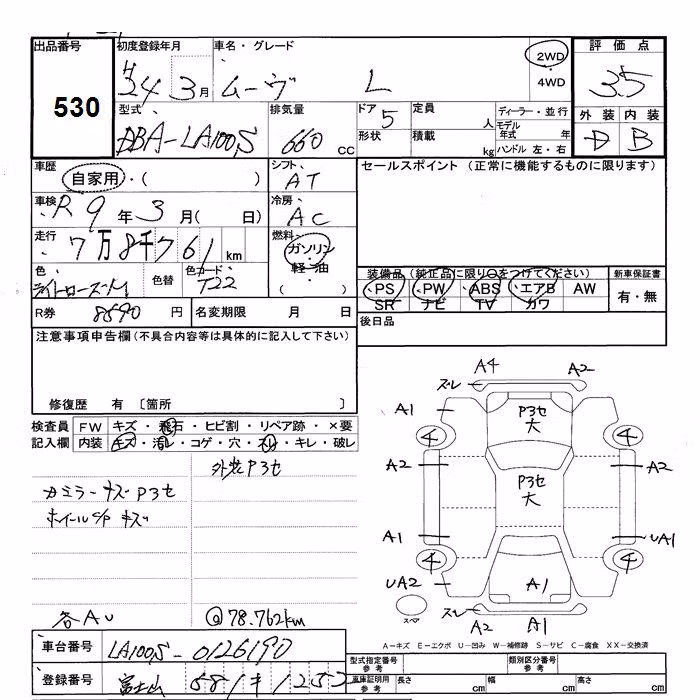 出品番号 初度登録年月 車名・グレード 評価点
530 H24年3月 ムーヴ L 2WD ・ 4WD 3.5
型式 排気量 ドア 定員 ディーラー・並行 外装 内装
DBA-LA100S 660cc 5 人 モデル年式 年 D B
形状 積載 kg ハンドル 左・右
車歴 シフト セールスポイント (正常に機能するものに限ります)
自家用・( ) AT
車検 冷房
R9年3月( 日) AC
走行 燃料
7万8千761km ガソリン・軽油・( )
色 色替 色コード 装備品(純正品)に限り○をつけてください) 新車保証書
ライトローズM T22 PS PW ABS エアB AW 有・無
SR ナビ TV カワ
R券 8690円 名変期限 月 日 後日品
注意事項申告欄(不具合内容等は具体的に記入して下さい)
修復歴 有 [箇所 ]
検査員 FW キズ・飛石・ヒビ割・リペア跡・×要
記入欄 内装 キズ・汚レ・コゲ・穴・スレ・キレ・破レ
外装P3セ
カミラーキズ P3セ
ホイールCP キズ
各AU @78.762km
A4 A2
スレ
A1 P3セ 大 A1
4 4
A2 P3セ 大 A2
A1 UA1
4 4
UA2 A1 A2
スペア スレ A2 A1
A-キズ E-エクボ U-凹み W-補修跡 S-サビ C-腐食 XX-交換済
車台番号 LA100S-0126190
型式指定番号 参考 類別区分番号 参考
登録番号 富士山 581 1252
車庫証明用 参考 長さ cm 幅 cm 高さ cm